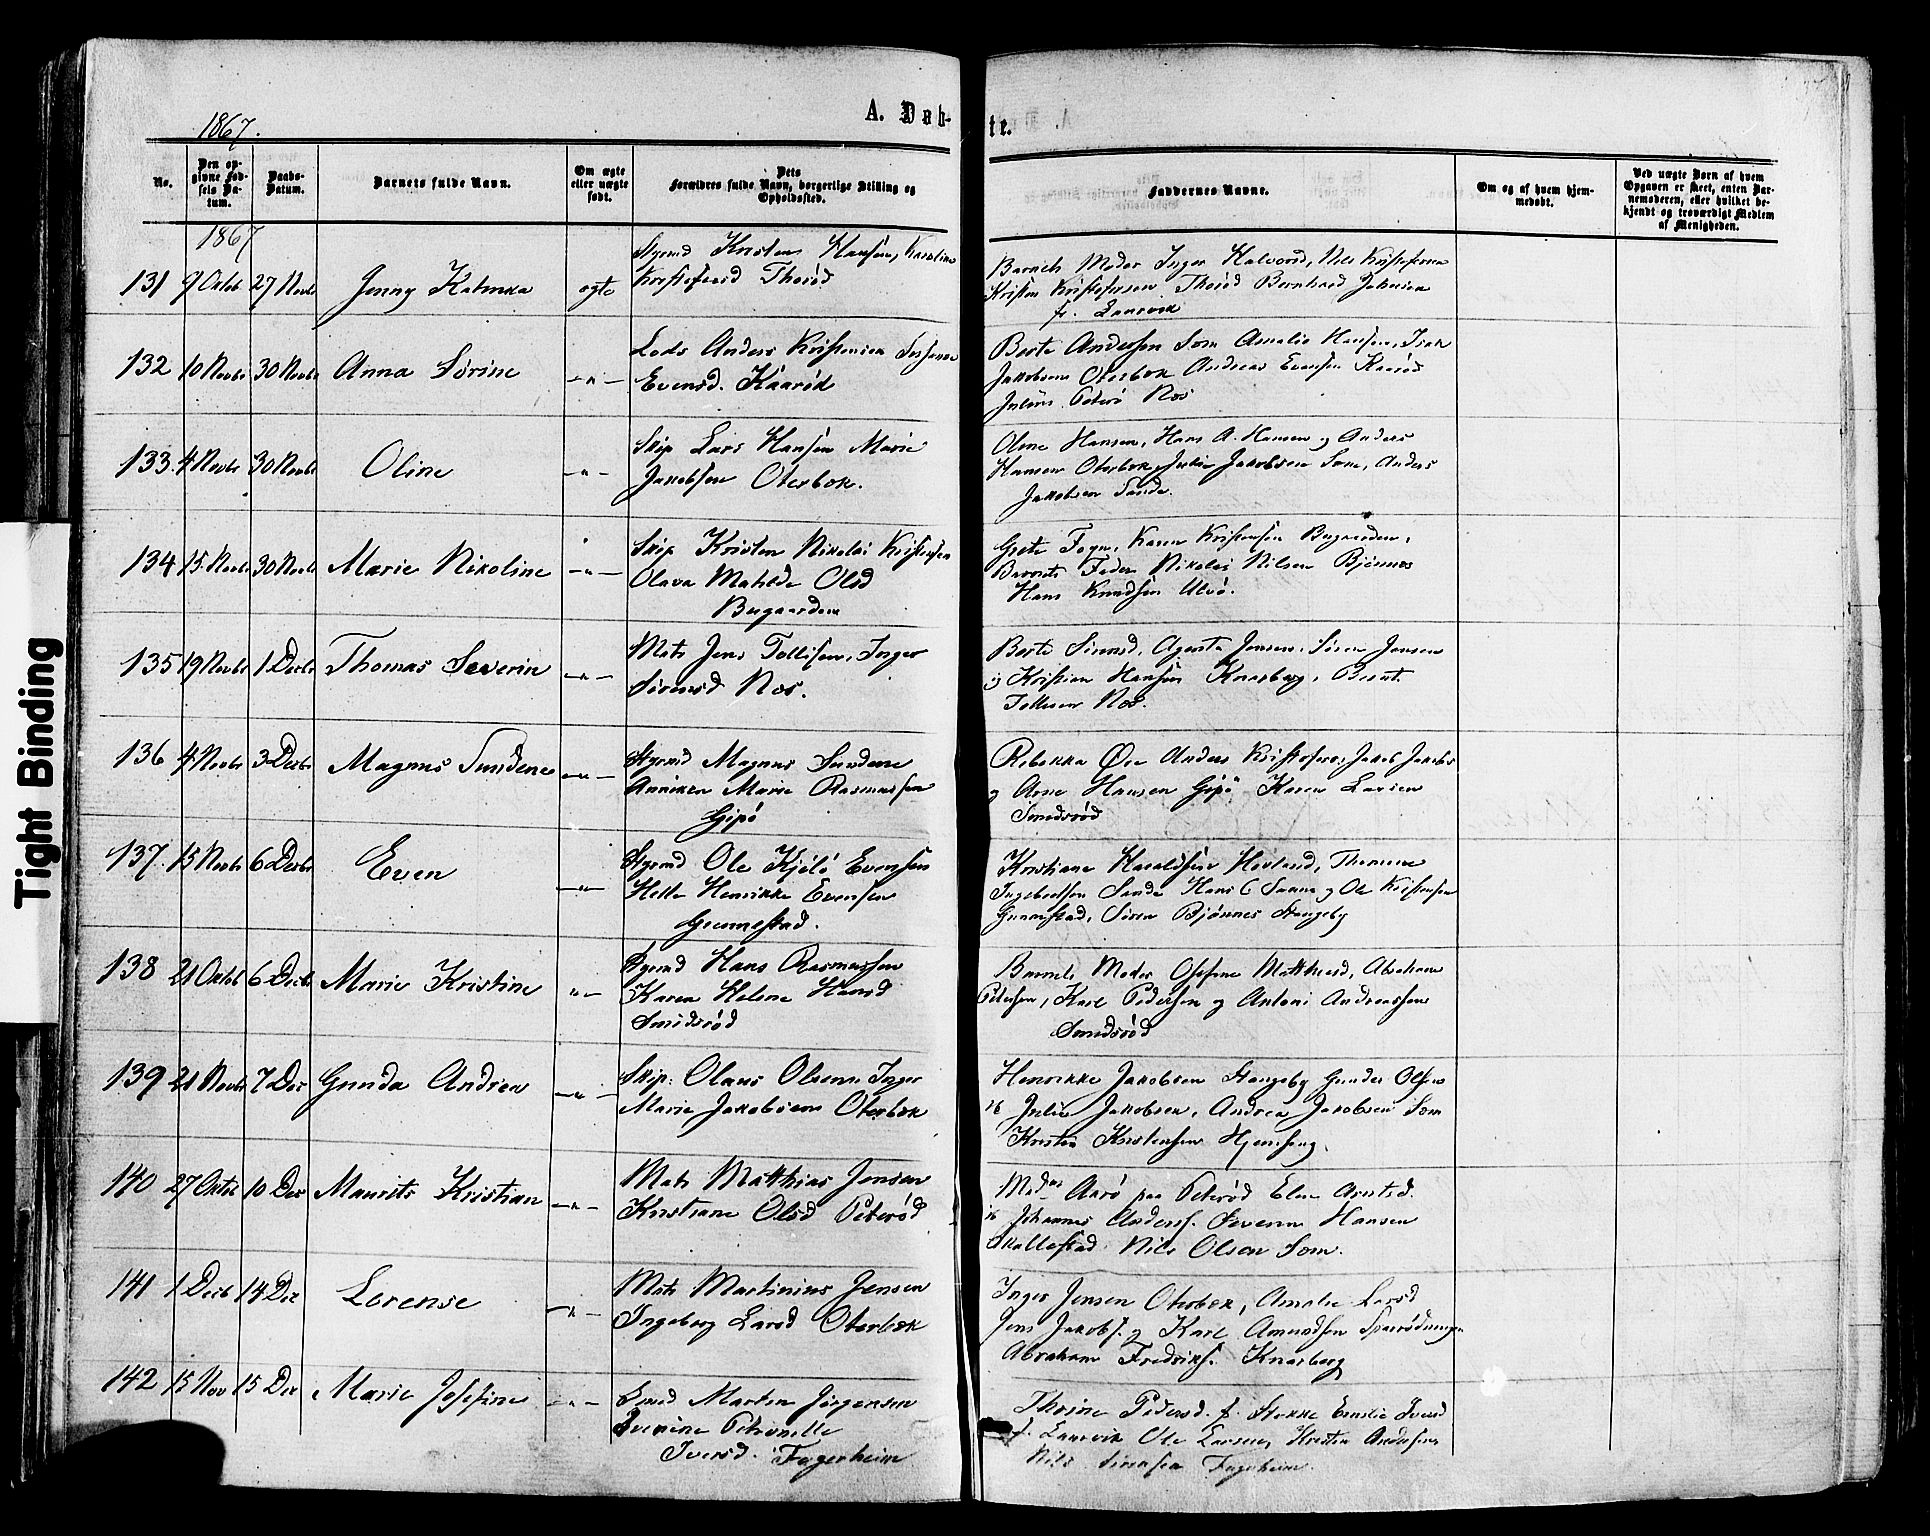 1867.
A. Døb-
te.
No.
Den op-
givne Fød-
sels Da-
tum.
Daabs-
Datum.
Barnets fulde Navn.
Om ægte
eller uægte
født.
Dets
Forældres fulde Navn, borgerlige Stilling og
Opholdssted.
Faddernes Navne.
Om og af hvem hjem-
medøbt.
Ved uægte Børn af hvem
Opgaven er skeet, enten Bar-
nemoderen, eller hvilket be-
kjendt og troværdigt Medlem
af Menigheden.
1867
131 9 Oktob 27 Novbr Jenny Katinka ægte
Styrmd Kristen Hansen, Karoline
Kristofersd Thorød
Barnets Moder Inger Halvorsd, Nils Kristofersen
Kristen Kristofersen Thorød Bernhard Johnsen
fr. Laurvik
132 10 Novbr 30 Novbr Anna Sørine —"—
Lods Anders Kristensen
Evensd. Kaarød
Berte Andersen Som Amalie Hansen, Isak
Jakobsen Oterbæk Andreas Evensen Kaarød
Julius Peterø Nøs
133. 4 Novbr 30 Novbr Oline —"—
Skip Lars Hansen Marie
Jakobsen Oterbæk.
Hansen, Hans A. Hansen og Anders
Hansen Oterbæk, Julie Jakobsen Som, Anders
Jakobsen Sande.
134 15 Novbr 30 Novbr Marie Nikoline —"—
Skip Kristen Nikolai Kristensen
Olava Matilde Olsd
Bugaarden
Grete Fogn, Karen Kristensen Bugaarden,
Barnets Fader Nikolai Nilsen Bjønnes
Hans Knudsen Ulvø.
135 19 Novbr 1 Decbr Thomas Severin —"—
Mats Jens Tollisen, Inger
Sørensd Nøs.
Berte Sørensd, Agnete Jensen, Søren Jensen
og Kristian Hansen Knarberg, Bernt
Tollisen Nøs.
136 4 Novbr 3 Decbr Magnus Sundene —"—
Styrmd Magnus Sundene
Anniken Marie Rasmussen
Gipø
Rebekka Øre Anders Kristofers, Jakob Jakobs
og Arne Hansen Gipø Karen Larsen
Smidsrød
137. 15 Novbr 6 Decbr Even —"—
Styrmd Ole Kjølø Evensen
Helle Henrikke Evensen
Gunnestad.
Kristiane Haraldsen Hovland, Thomine
Ingebretsen Sande Hans C Sanne og Ole Kristensen
Gunnestad, Søren Bjønnes Stangeby
138 21 Oktob 6 Decbr Marie Kristine "—
Styrmd Hans Rasmussen
Karen Helene Hansd
Smidsrød
Barnets Moder Josefine Matthisd, Abraham
Petersen, Karl Pedersen og Antoni Andreassen
Smidsrød
139 21 Novbr 7 Dec Gunda Andrea —"—
Skip: Olaus Olsen, Inger
Marie Jakobsen Oterbæk
Henrikke Jakobsen Stangeby Gunder Olsen
Julie Jakobsen, Andrea Jakobsen Som
Kristen Kristensen Hjemseng.
140 27 Oktob 10 Dec Maurits Kristian —"—
Mats Matthias Jensen
Kristiane Olsd Peterød
Aarø paa Peterød Elen Arntsd.
Johannes Anderss. Severin Hansen
Skallestad. Nils Olsen Som.
141 1 Decb 14 Dec Lorense —"—
Mats Martinius Jensen
Ingeborg Larsd Oterbæk
Inger Jensen Oterbæk, Amalie Larsd
Jens Jakobs. og Karl Amundsen
Abraham Fredriks. Knarberg
142 15 Nov 15 Dec Marie Josefine —"—
Smed Martin Jørgensen
Severine Petronelle
Iversd. Fagerheim
Thorine Pedersd. f. Stokke Emilie Iversd
f. Laurvik Ole Larsen, Kristen Andersen
Nils Sørensen Fagerheim.
Tight Binding